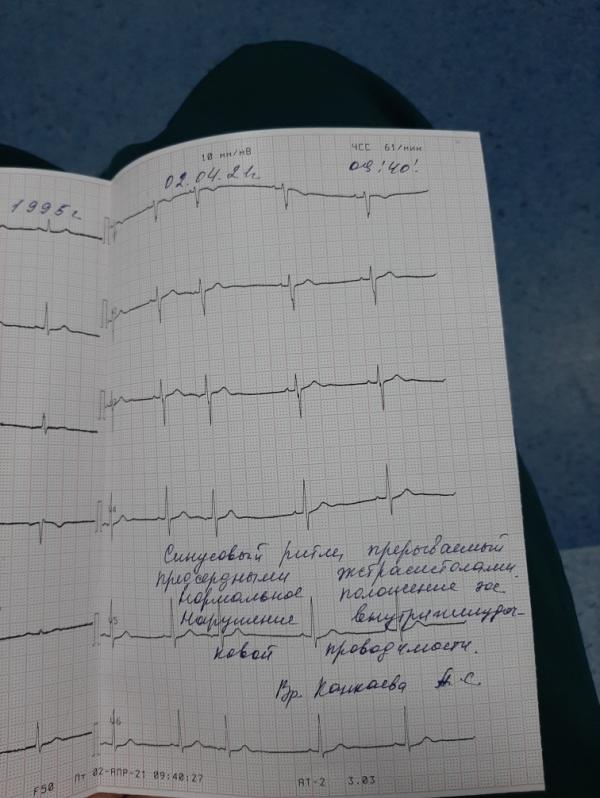 10 мм/мВ ЧСС 61/мин
1995г 02.04.21г. 09:40!
Синусовый ритм, прерываемый
предсердными экстрасистолами.
Нормальное положение эос
Нарушение внутрижелудоч-
ковой проводимости.
Вр. С.
F50 Пт 02-АПР-21 09:40:27 AT-2 3.03